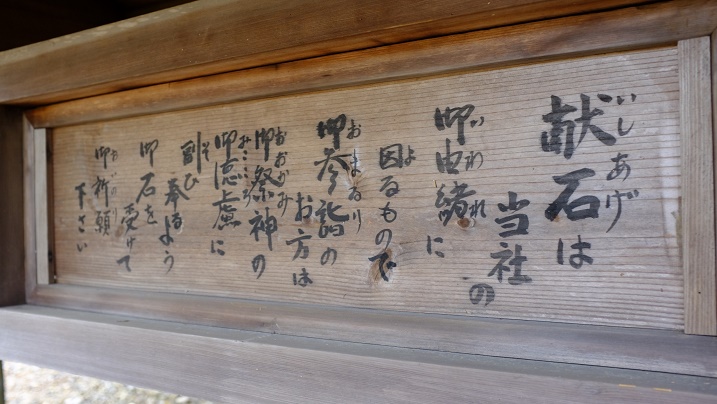 献石は
いしあげ
当社の
御由緒に
いわれ
因るもので
よ
御参詣の
おまゐり
お方は
御祭神の
おおがみ
御慮に
みこころ
副ひ
そ
奉るよう
御石を
受けて
御祈願
おいのり
下さい